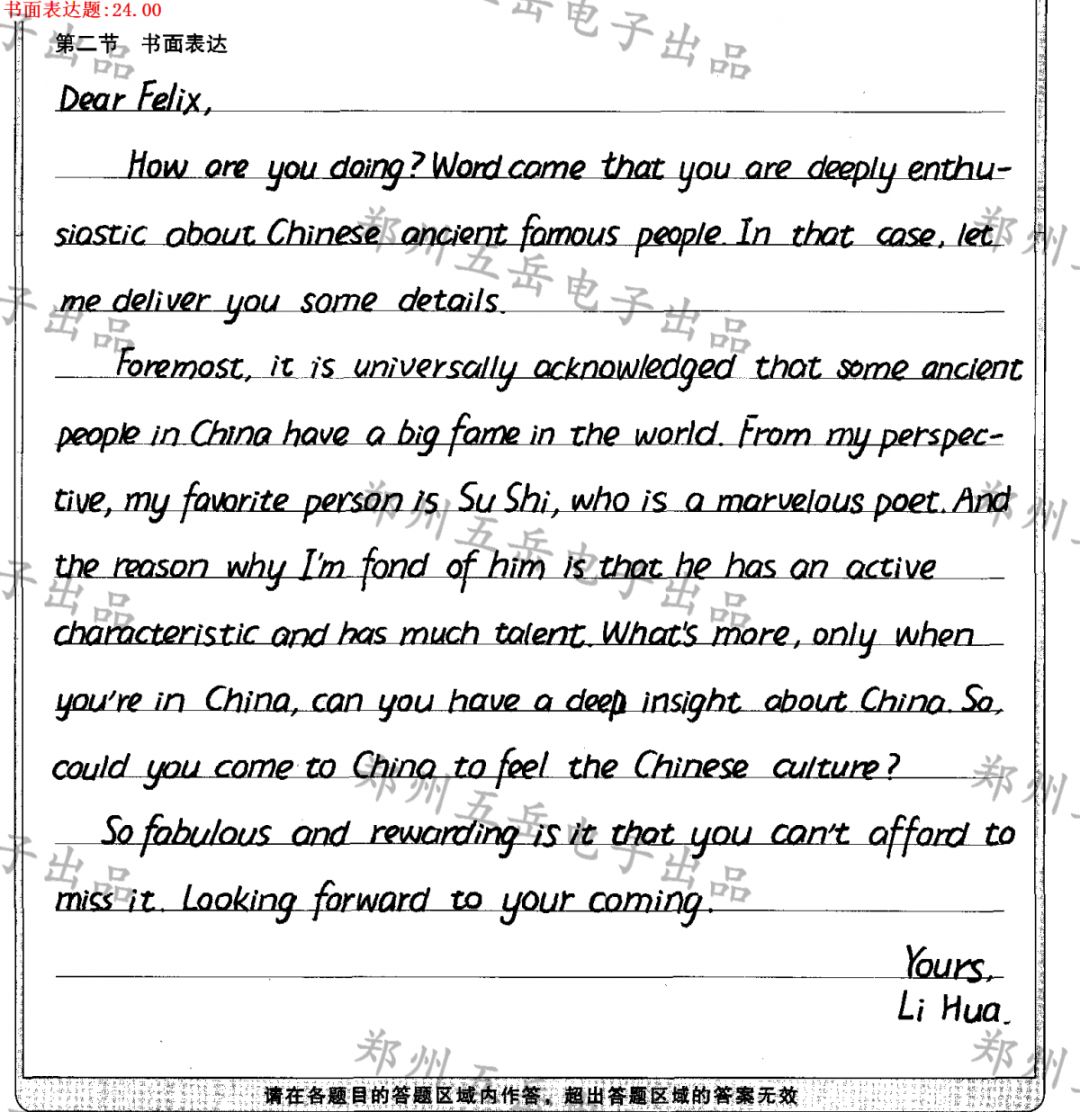 书面表达题:24.00
第二节 书面表达
Dear Felix,
How are you doing? Word came that you are deeply enthu-
siastic about Chinese ancient famous people. In that case, let
me deliver you some details.
Foremost, it is universally acknowledged that some ancient
people in China have a big fame in the world. From my perspec-
tive, my favorite person is Su Shi, who is a marvelous poet. And
the reason why I'm fond of him is that he has an active
characteristic and has much talent. What's more, only when
you're in China, can you have a deep insight about China. So,
could you come to China to feel the Chinese culture?
So fabulous and rewarding is it that you can't afford to
miss it. Looking forward to your coming.
Yours,
Li Hua.
请在各题目的答题区域内作答，超出答题区域的答案无效
郑州五岳电子出品